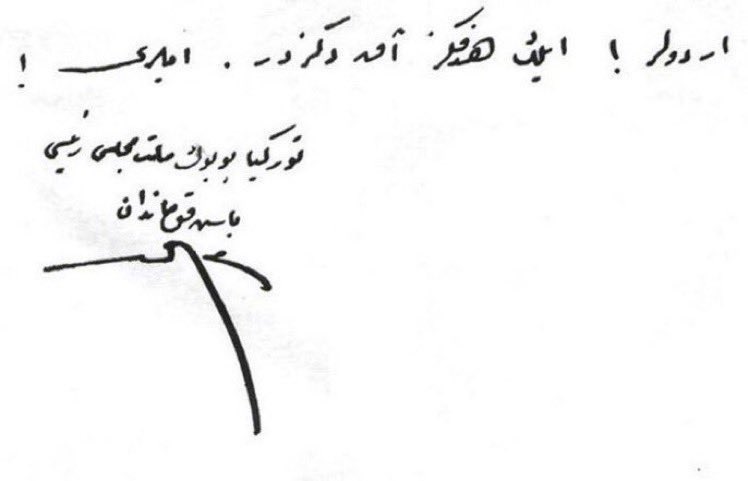 اردولر ! ایلك هدفکز آق دکزدر . ایلری !
تورکیا بویوك ملت مجلسی رئیسی
باش قوماندان